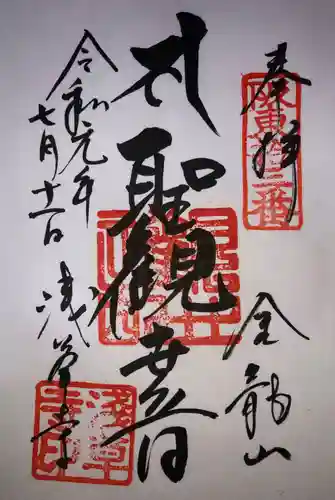 奉拝
坂東十三番
金龍山
聖観世音
令和元年
七月十一日
浅草寺
浅草寺印